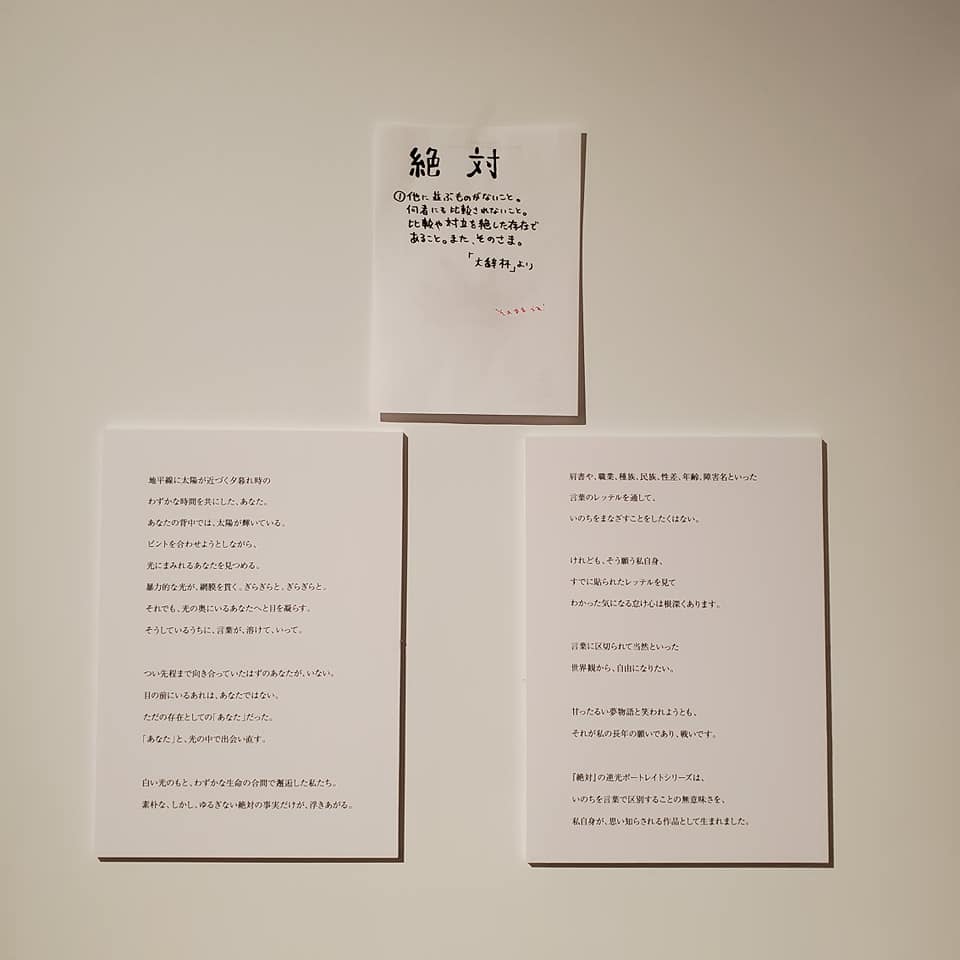 絶対
①他に並ぶものがないこと。
何者にも比較されないこと。
比較や対立を絶した存在で
あること。また、そのさま。
「大辞林」より
地平線に太陽が近づく夕暮れ時の
わずかな時間を共にした、あなた。
あなたの背中では、太陽が輝いている。
ピントを合わせようとしながら、
光にまみれるあなたを見つめる。
暴力的な光が、網膜を貫く。ぎらぎらと、ぎらぎらと。
それでも、光の奥にいるあなたへと目を凝らす。
そうしているうちに、言葉が、溶けて、いって。
つい先程まで向き合っていたはずのあなたが、いない。
目の前にいるあれは、あなたではない。
ただの存在としての「あなた」だった。
「あなた」と、光の中で出会い直す。
白い光のもと、わずかな生命の合間で邂逅した私たち。
素朴な、しかし、ゆるぎない絶対の事実だけが、浮きあがる。
肩書や、職業、種族、民族、性差、年齢、障害名といった
言葉のレッテルを通して、
いのちをまなざすことをしたくはない。
けれども、そう願う私自身、
すでに貼られたレッテルを見て
わかった気になる怠け心は根深くあります。
言葉に区切られて当然といった
世界観から、自由になりたい。
甘ったるい夢物語と笑われようとも、
それが私の長年の願いであり、戦いです。
『絶対』の逆光ポートレイトシリーズは、
いのちを言葉で区別することの無意味さを、
私自身が、思い知らされる作品として生まれました。